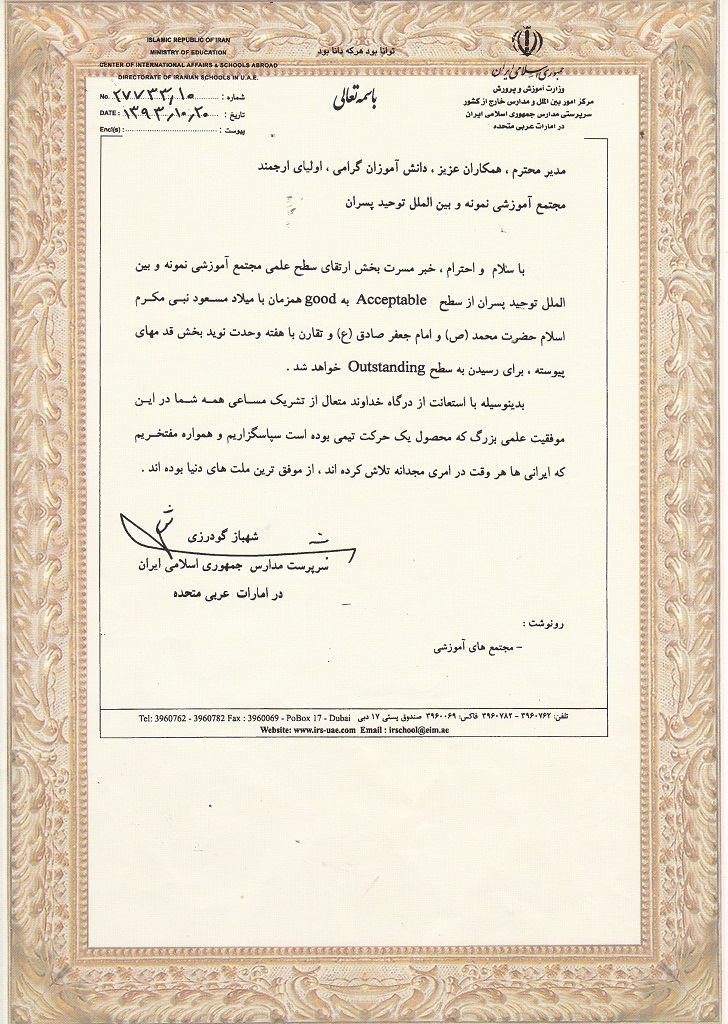 ISLAMIC REPUBLIC OF IRAN
MINISTRY OF EDUCATION
CENTER OF INTERNATIONAL AFFAIRS & SCHOOLS ABROAD
DIRECTORATE OF IRANIAN SCHOOLS IN U.A.E.
توانا بود هرکه دانا بود
جمهوری اسلامی ایران
وزارت آموزش و پرورش
مرکز امور بین الملل و مدارس خارج از کشور
سرپرستی مدارس جمهوری اسلامی ایران
در امارات عربی متحده
باسمه تعالی
No. ۲۷۷۳۳/۱۰ شماره :
DATE : ۱۳۹۳/۱۰/۲۰ تاریخ :
Encl(s) : پیوست :
مدیر محترم ، همکاران عزیز ، دانش آموزان گرامی ، اولیای ارجمند
مجتمع آموزشی نمونه و بین الملل توحید پسران
با سلام و احترام ، خبر مسرت بخش ارتقای سطح علمی مجتمع آموزشی نمونه و بین
الملل توحید پسران از سطح Acceptable به good همزمان با میلاد مسعود نبی مکرم
اسلام حضرت محمد (ص) و امام جعفر صادق (ع) و تقارن با هفته وحدت نوید بخش قد مهای
پیوسته ، برای رسیدن به سطح Outstanding خواهد شد .
بدینوسیله با استعانت از درگاه خداوند متعال از تشریک مساعی همه شما در این
موفقیت علمی بزرگ که محصول یک حرکت تیمی بوده است سپاسگزاریم و همواره مفتخریم
که ایرانی ها هر وقت در امری مجدانه تلاش کرده اند ، از موفق ترین ملت های دنیا بوده اند .
شهباز گودرزی
سرپرست مدارس جمهوری اسلامی ایران
در امارات عربی متحده
رونوشت :
– مجتمع های آموزشی
تلفن: ۳۹۶۰۷۶۲ – ۳۹۶۰۷۸۲ فاکس: ۳۹۶۰۰۶۹ صندوق پستی ۱۷ دبی Tel: 3960762 - 3960782 Fax : 3960069 - PoBox 17 - Dubai
Website: www.irs-uae.com Email : irschool@eim.ae